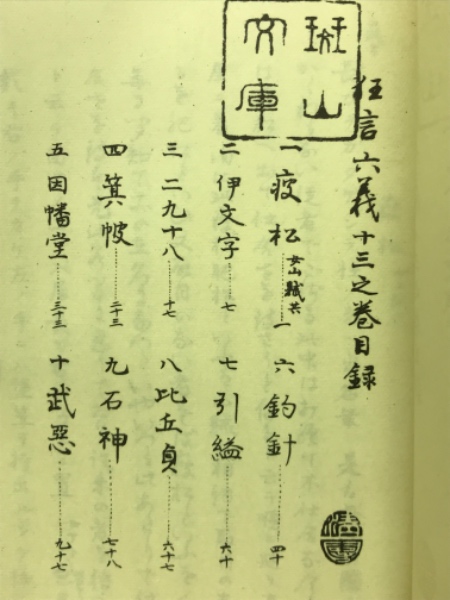 斑山文庫
狂言六義十三之巻目録
一 痩松 女山賊共……一 六 釣針……四十
二 伊文字……七 七 引縊……六十
三 二九十八……十七 八 比丘貞……六十七
四 箕帔……二十三 九 石神……七十八
五 因幡堂……三十三 十 武惡……九十七